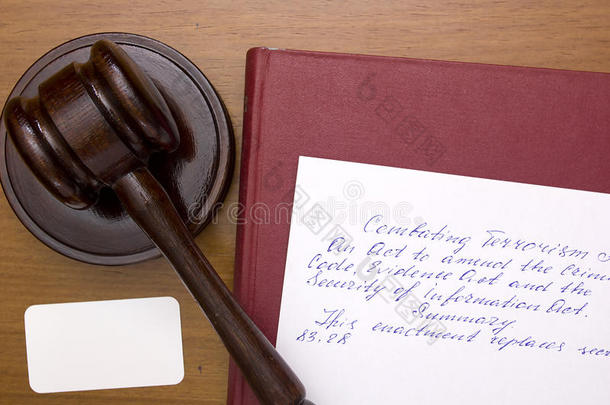 Combating Terrorism A
An Act to amend the Crimin
Code, Evidence Act and the
Security of Information Act.
Summary
This enactment replaces sec
83.28